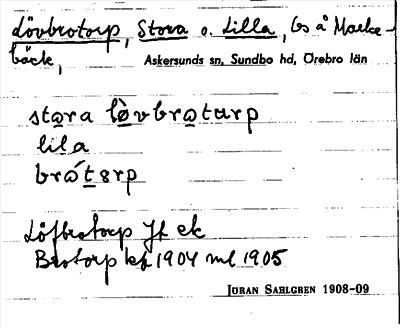 Lövbrotorp, Stora o. Lilla, ls å Marke-
bäck, Askersunds sn, Sundbo hd, Örebro län
stora lòvbrotɯrp
lila
brótɵrp
Löfbrotorp Jf ek
Brotorp kf 1904 ml 1905
JÖRAN SAHLGREN 1908-09